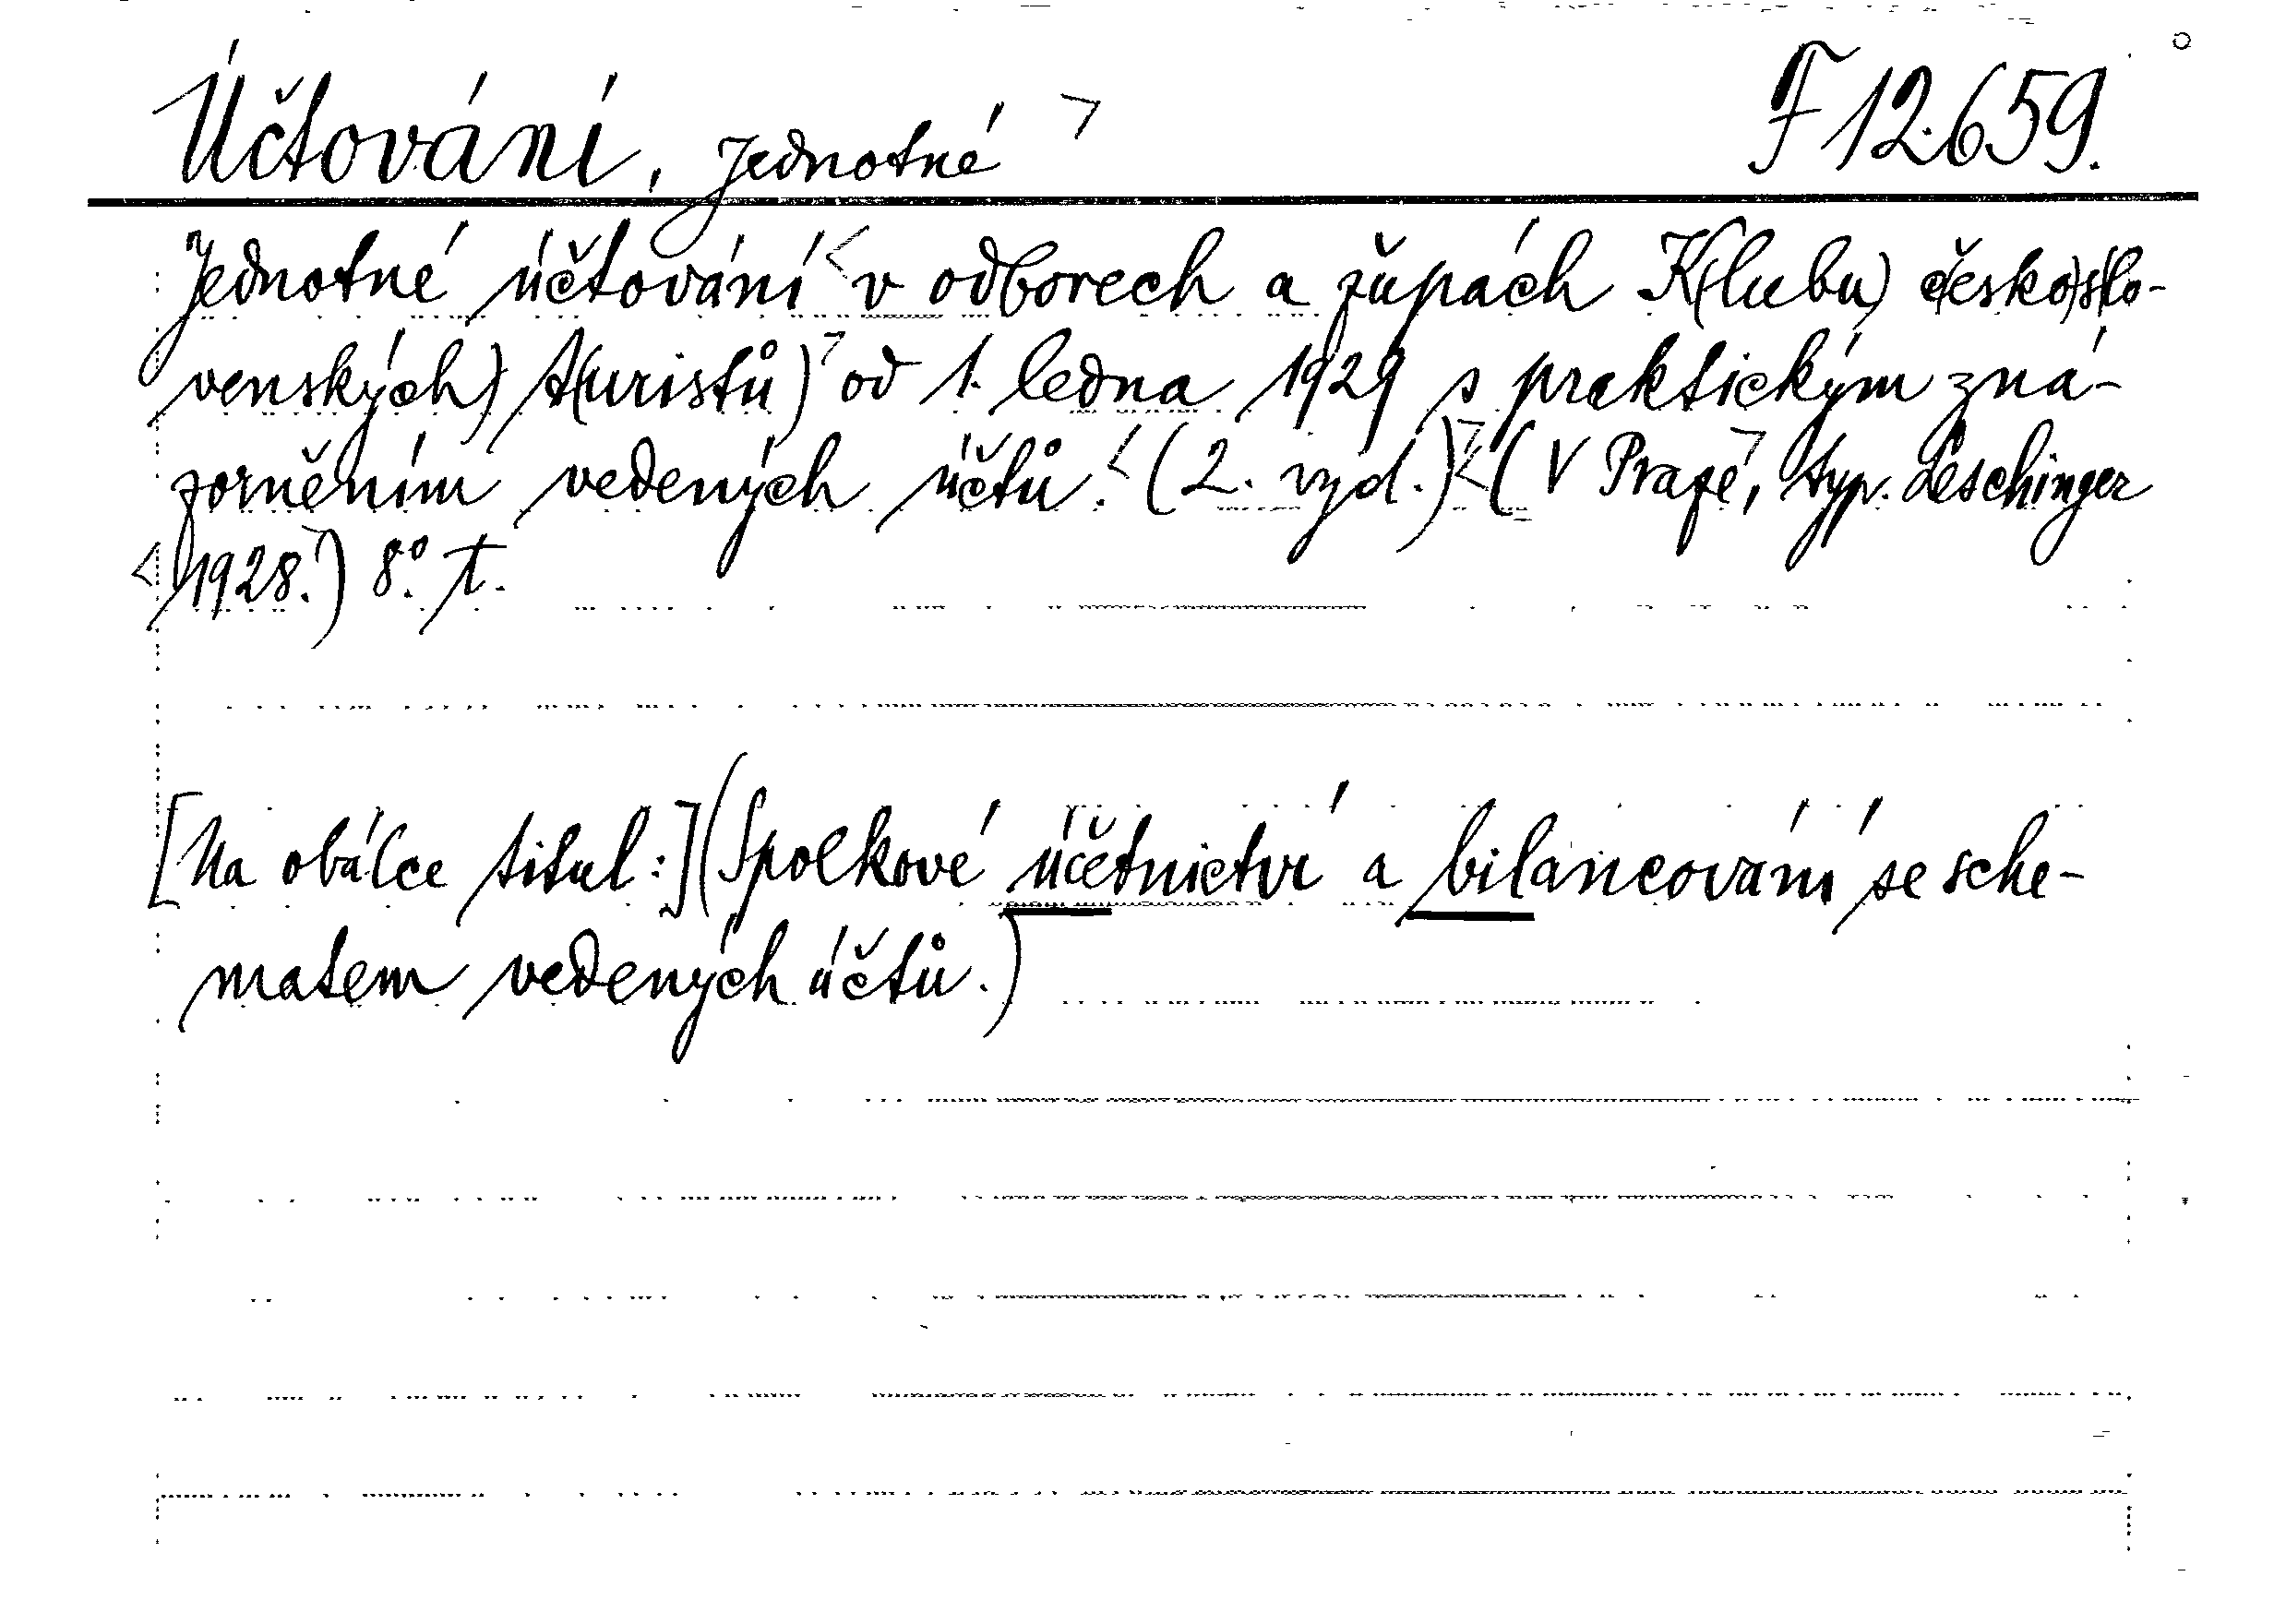 Účtování, Jednotné ¬ F 12.659.
Jednotné účtování < v odborech a župách K(lubu) č(esko)s(lo-
venských) t(uristů) ¬ od 1. ledna 1929 s praktickým zná-
zorněním vedených účtů. < (2. vyd.) ¬ < (V Praze ¬, typ. Leschinger
< 1928. ¬) 8°. T.
[Na obálce titul:] (Spolkové účetnictví a bilancování se sche-
matem vedených účtů.)